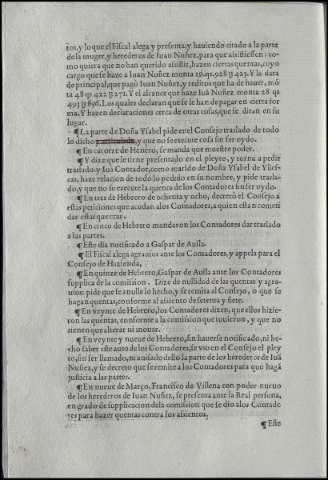 tos, y lo que el Fiscal alega y presenta, y hauiendo citado a la parte
de la muger, y herederos de Iuan Nuñez, para que assistiessen: como
quiera que no han querido assistir, hazen ciertas quentas, cuyo
cargo que se haze a Iuan Nuñez monta 19 qs. 928 U 423. Y la data
de principal, que pagò Iuan Nuñez, y reditos que ha de hauer, monta
48 qs 422 U 271. Y el alcance que haze Iuã Nuñez monta 28 qs
493 U 896. Los quales declaran que se le han de pagar en cierta forma.
Y hazen declaraciones cerca de otras cosas, que se diran en su
lugar.
¶ La parte de Doña Ysabel pide en el Consejo traslado de todo
lo dicho, y que no se execute cosa sin ser oydo.
¶ En catorze de Henero, se manda que muestre poder.
¶ Y dize que le tiene presentado en el pleyto, y torna a pedir
traslado y Iuã Contador, como marido de Doña Ysabel de Yllescas,
haze relacion de todo lo pedido en su nombre, y pide traslado,
y que no se execute la quenta de los Contadores sin ser oydo.
¶ En tres de Hebrero de ochenta y ocho, decretò el Consejo a
estas peticiones que acudan a los Contadores, a quien està remetido
dar estas quentas.
¶ En cinco de Hebrero mandaron los Contadores dar traslado
a las partes.
¶ Este dia notificado a Gaspar de Auila.
¶ El Fiscal alega agrauios ante los Contadores, y appela para el
Consejo de Hazienda.
¶ En quinze de Hebrero, Gaspar de Auila ante los Contadores
supplica de la comision: Dize de nullidad de las quentas y agrauios:
pide que se anulle lo hecho, y se remita al Consejo, o que se
hagan quentas, conforme al assiento de setenta y siete.
¶ En veynte de Hebrero, los Contadores dizen, que ellos hizieron
las quentas, conforme a la comission que tuuieron, y que no
tienen que alterar ni mouar.
¶ En veynte y nueue de Hebrero, sin hauerse notificado, ni hecho
saber este auto de los Contadores, se vio en el Consejo el pleyto,
sin ser llamado, ni auisado dello la parte de los herederos de Iuã
Nuñez, y se decreto que se remite a los Contadores para que hagã
justicia a las partes.
¶ En nueue de Março, Francisco de Villena con poder nueuo
de los herederos de Iuan Nuñez, se presenta ante la Real persona,
en grado de supplicacion de la comission que se dio a los Contadores
para hazer quentas contra los assientos.
¶ Este